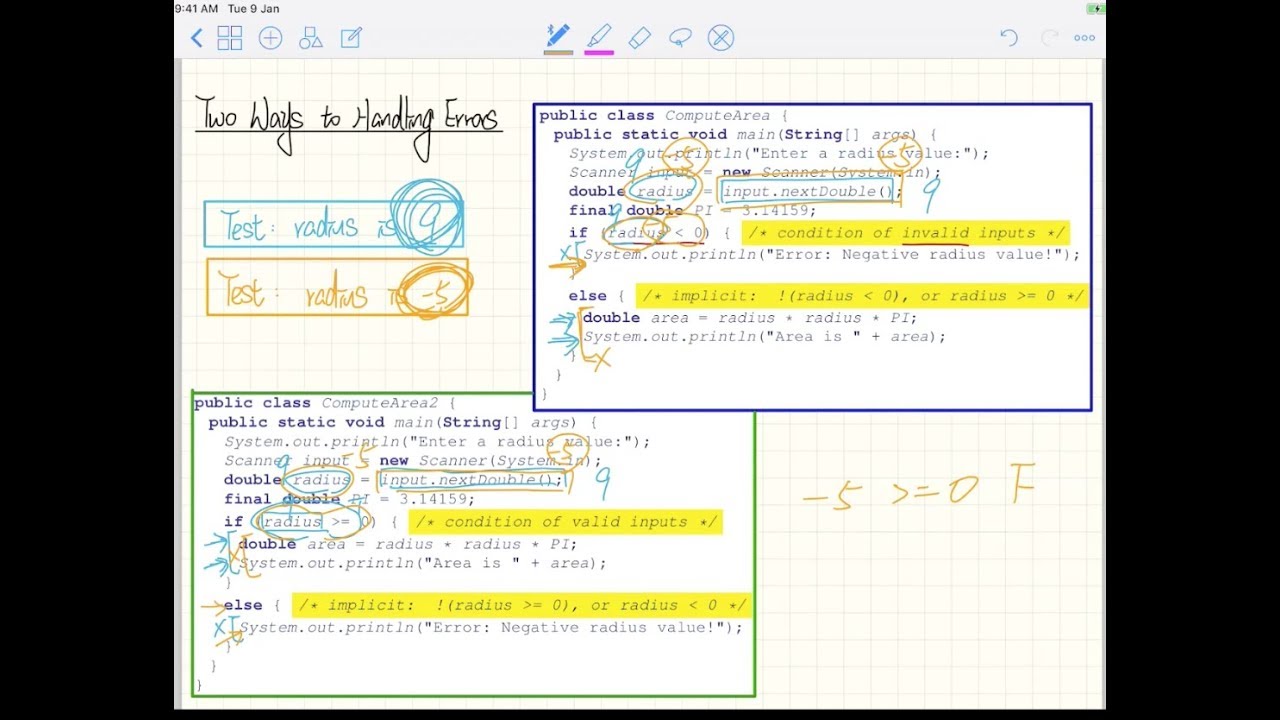 9:41 AM Tue 9 Jan
Two Ways to Handling Errors
Test: radius is 9
Test: radius is -5
public class ComputeArea {
public static void main(String[] args) {
System.out.println("Enter a radius value:");
Scanner input = new Scanner(System.in);
double radius = input.nextDouble();
final double PI = 3.14159;
if (radius < 0) { /* condition of invalid inputs */
System.out.println("Error: Negative radius value!");
else { /* implicit: !(radius < 0), or radius >= 0 */
double area = radius * radius * PI;
System.out.println("Area is " + area);
}
}
}
9 -5 -5
9
9 -5
X
X
public class ComputeArea2 {
public static void main(String[] args) {
System.out.println("Enter a radius value:");
Scanner input = new Scanner(System.in);
double radius = input.nextDouble();
final double PI = 3.14159;
if (radius >= 0) { /* condition of valid inputs */
double area = radius * radius * PI;
System.out.println("Area is " + area);
}
else { /* implicit: !(radius >= 0), or radius < 0 */
System.out.println("Error: Negative radius value!");
}
}
}
9 -5 -5
9
X
X
-5 >=0 F